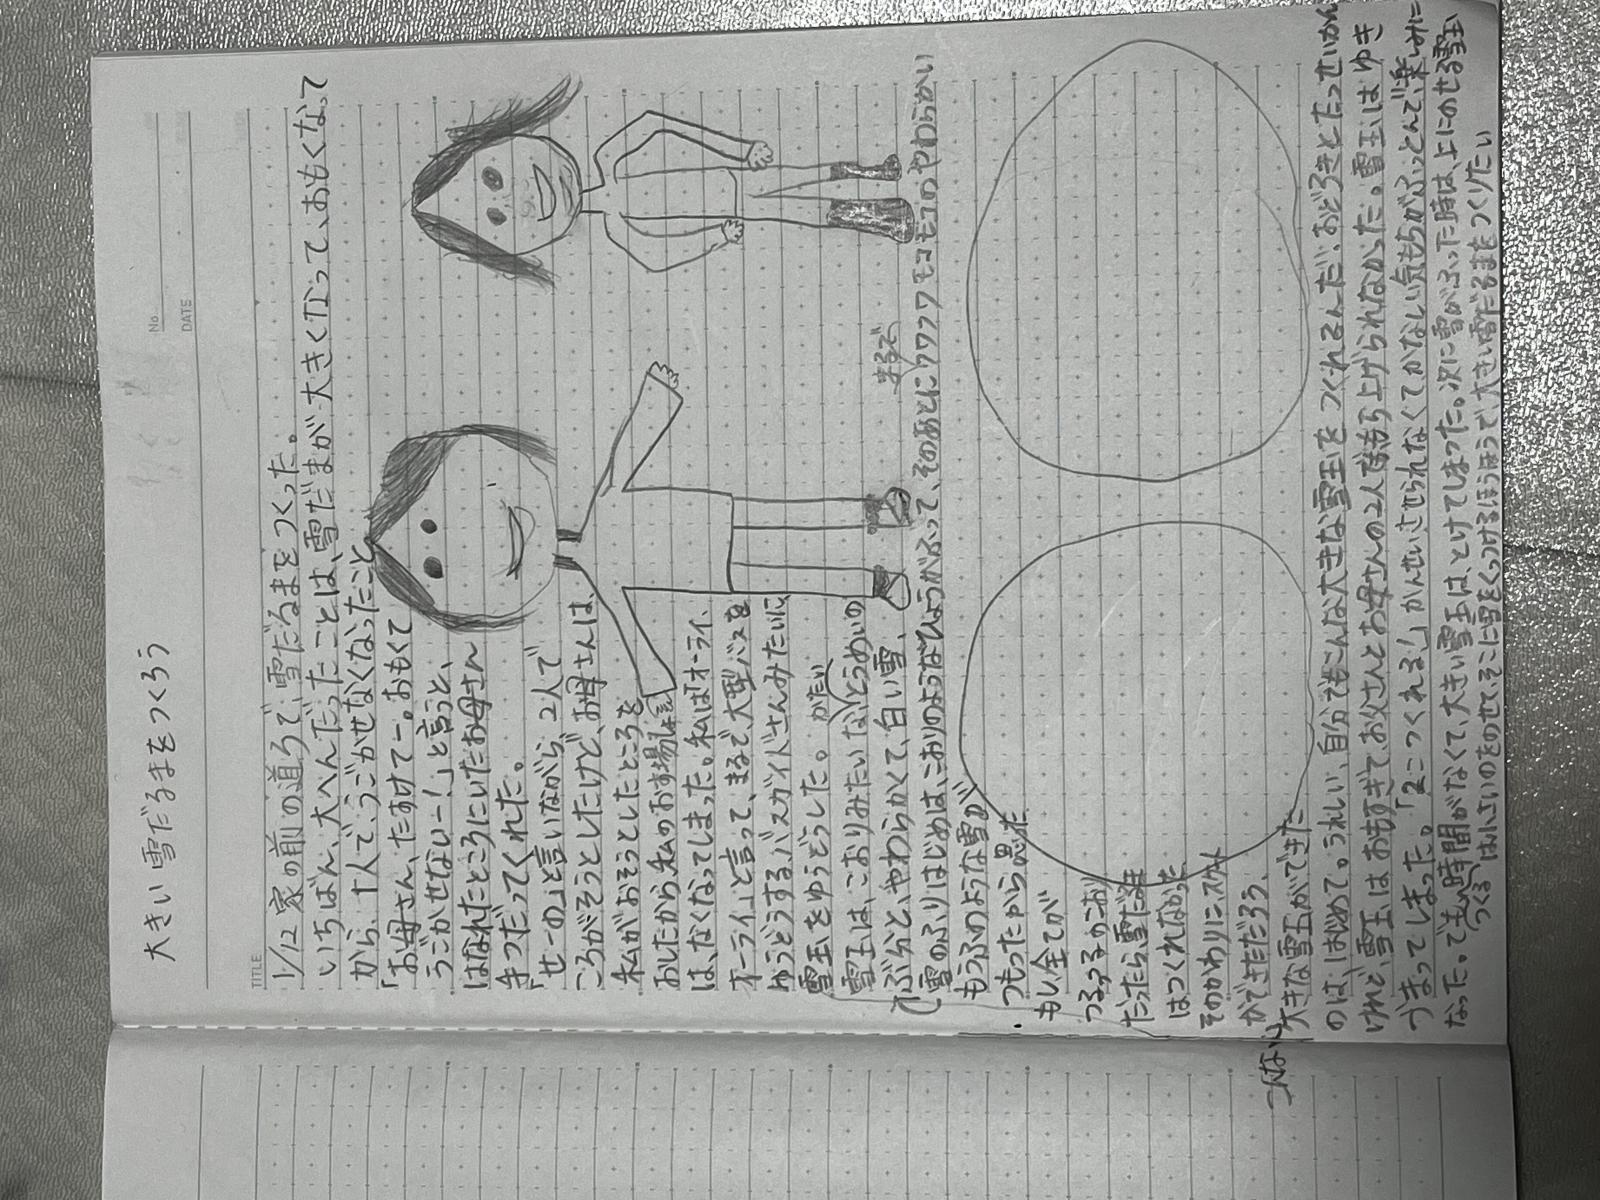 大きい雪だるまをつくろう
No.
DATE
TITLE
1/12 家の前の道ろで、雪だるまをつくった。
いちばん、大へんだったことは、雪だまが大きくなって、おもくなって
から、1人で、うごかせなくなったこと
「お母さん、たすけてー。おもくて
うごかせないー!」と言うと、
はなれたところにいたお母さん
手つだってくれた。
「せーの」と言いながら、2人で
ころがそうとしたけど、お母さんは、
私がおそうとしたところを
おしたから、私のおす場しょ
は、なくなってしまった。私は「オーライ、
オーライ」と言って、まるで、大型バスを
ゆうどうするバスガイドさんみたいに
雪玉をゆうどうした。
かたい
雪玉は、こおりみたいなとうめいの
ぶ分と、やわらかくて、白い雪、
まるで
(雪のふりはじめは、こおりのようなひょうがふって、そのあとにフワフワモコモコのやわらかい
もうふのような雪が
つもったから思った
もし全てが
つるつるのこおり
だったら雪だるま
はつくれなかった
そのかわりにスケート
ができただろう、
こんな
大きな雪玉ができた
のは、はじめて。うれしい、自分でもこんな大きな雪玉をつくれるんだ、おどろきとたっせいかん
けれど、雪玉はおもすぎてお父さんとお母さんの2人でももち上げられなかった。雪玉はゆき
づまってしまった。「2こつくれる!」かんせいさせられなくてかなしい気もちがふっとんで、楽しみに
なった。でも、時間がなくて、大きい雪玉は、とけてしまった。次に雪がふった時は、上にのせる雪玉
つくる
は小さいのをのせて、そこに雪をくっつけるほうほうで、大きい雪だるまをつくりたい